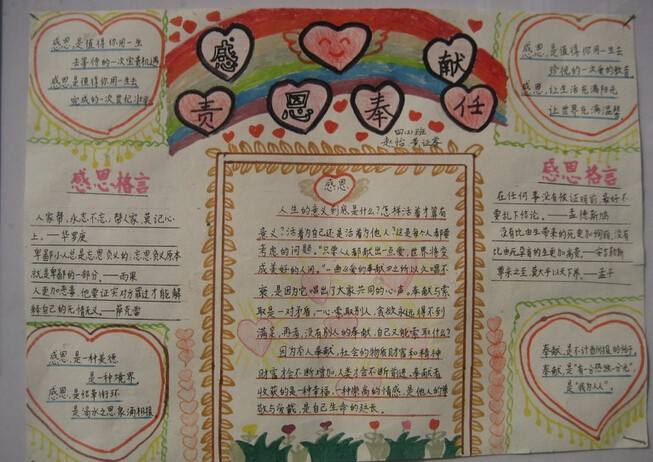 感恩,是值得你用一生
去等待的一次宝贵机遇
感恩,是值得你用一生去
完成的一次世纪壮举
感 献
责 恩 奉 任
四(1)班
感恩,是值得你用一生去
珍视的一次爱的教育
感恩,让生活充满阳光
让世界充满温馨
感恩格言
人家帮,永志不忘,帮人家,莫记心
上。—华罗庚
卑鄙小人总是忘恩负义的:忘恩负义原本
就是卑鄙的一部分。—雨果
人更加恶毒,他要证实对方罪过才能解
释自己的无情无义。—萨克雷
感恩,是一种美德
是一种境界
感恩,是结草衔环
是滴水之恩,涌泉相报
感恩
人生的意义到底是什么?怎样活着才算有
意义?活着为自己还是活着为他人?这是每个人都要
考虑的问题。"只要人人都献出一点爱,世界将变
成美好的人间。"一曲《爱的奉献》之所以久唱不
衰,是因为它唱出了大家共同的心声。奉献与索
取是一对矛盾,一心索取别人,贪欲永远得不到
满足,再者,没有别人的奉献,自己又能索取什么?
因为有人奉献,社会的物质财富和精神
财富才会不断增加,人类才会不断前进,奉献者
收获的是一种幸福,一种崇高的情感,是他人的尊
敬与爱戴,是自己生命的延长。
感恩格言
在任何事没有候证明前,最好不
要乱下结论。—孟德斯鸠
没有比由生带来的死更加绚丽,没有
比由死孕育的生更加高贵。—安吉勒斯
尊亲之至,莫大乎以天下养。—孟子
奉献,是不计酬报的给予,
奉献,是"有一分热发一分光",
是"我为人人"。